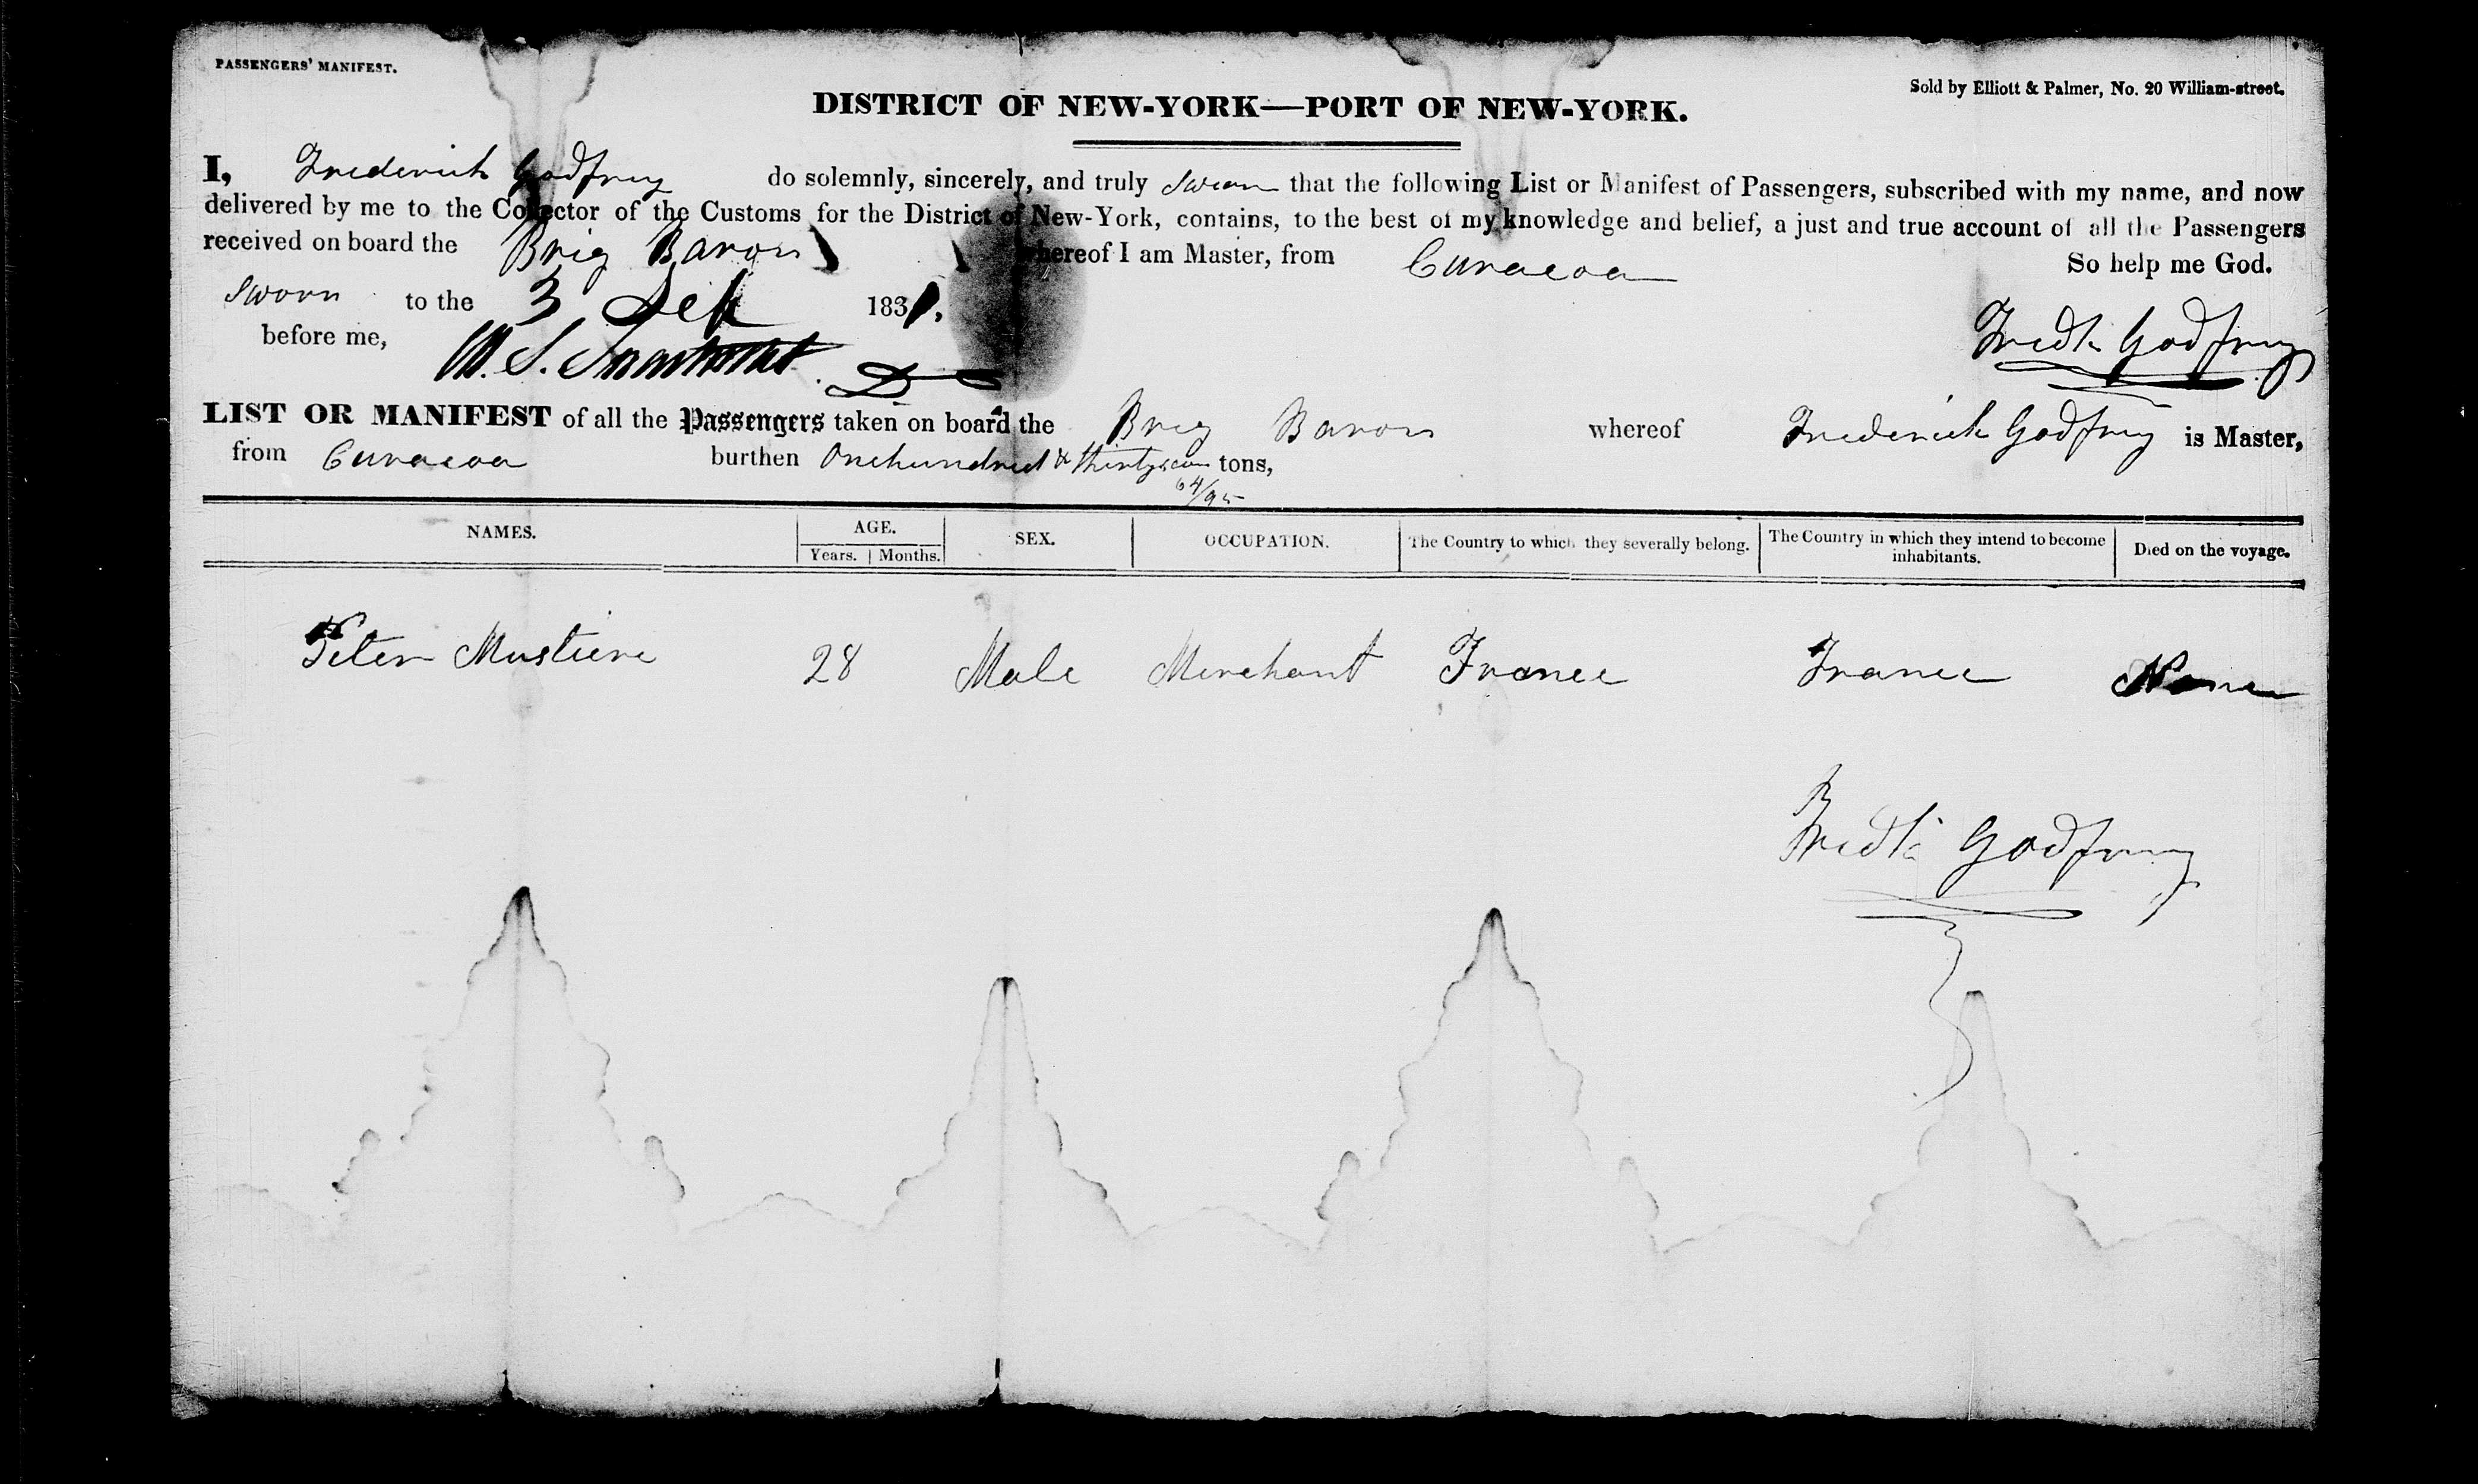 PASSENGERS' MANIFEST.
Sold by Elliott & Palmer, No. 20 William-street.
DISTRICT OF NEW-YORK—PORT OF NEW-YORK.
I, Frederick Godfrey do solemnly, sincerely, and truly swear that the following List or Manifest of Passengers, subscribed with my name, and now
delivered by me to the Collector of the Customs for the District of New-York, contains, to the best of my knowledge and belief, a just and true account of all the Passengers
received on board the Brig Baron whereof I am Master, from Curacoa So help me God.
Sworn to the 3 183
before me,
Fredk Godfrey
LIST OR MANIFEST of all the Passengers taken on board the Brig Baron whereof Frederick Godfrey is Master,
from Curacoa burthen One hundred & thirty tons,
64/95
NAMES. AGE. SEX. OCCUPATION. The Country to which they severally belong. The Country in which they intend to become inhabitants. Died on the voyage.
Years. Months.
Peter Mustiere 28 Male Merchant France France None
Fredk Godfrey